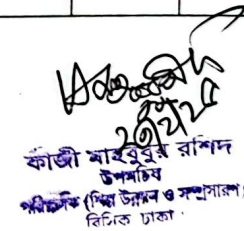 কাজী মাহবুবুর রশিদ
উপসচিব
পরিচালক (শিল্প উন্নয়ন ও সম্প্রসারণ)
বিসিক ঢাকা।